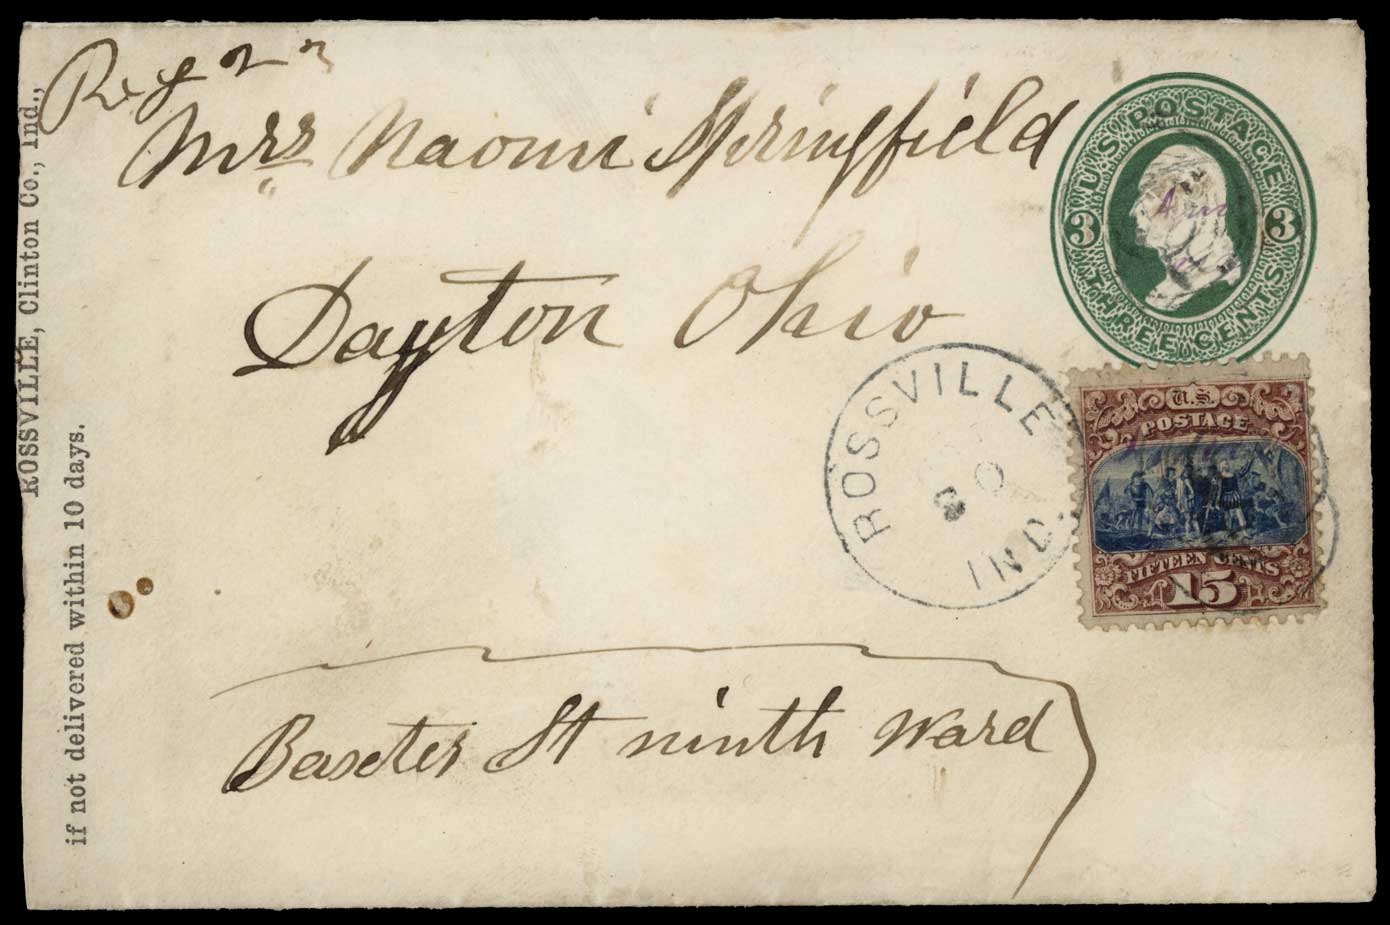 Reg
Mrs Naomi Springfield
Dayton Ohio
Baxter St ninth Ward
ROSSVILLE, Clinton Co., Ind.,
if not delivered within 10 days.
U.S. POSTAGE
3 3
THREE CENTS
ROSSVILLE
IND.
U.S.
POSTAGE
FIFTEEN CENTS
15